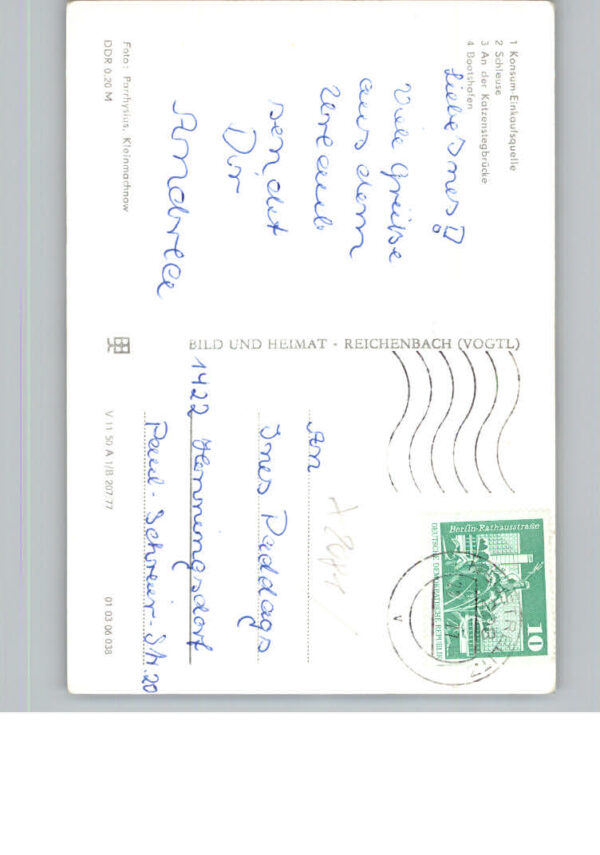 1 Konsum-Einkaufsquelle
2 Schleuse
3 An der Katzenstegbrücke
4 Bootshafen
Liebe Ines!
Viele Grüße
aus dem
Urlaub
sendet
Dir
Andrea
Foto: Parrhysius, Kleinmachnow
DDR 0,20 M
BILD UND HEIMAT - REICHENBACH (VOGTL)
Berlin-Rathausstraße
DEUTSCHE DEMOKRATISCHE REPUBLIK
10
An
Ines Paddags
1422 Henningsdorf
Paul-Schreier-Str. 20
V 11 50 A 1/B 207.77
01 03 06 038